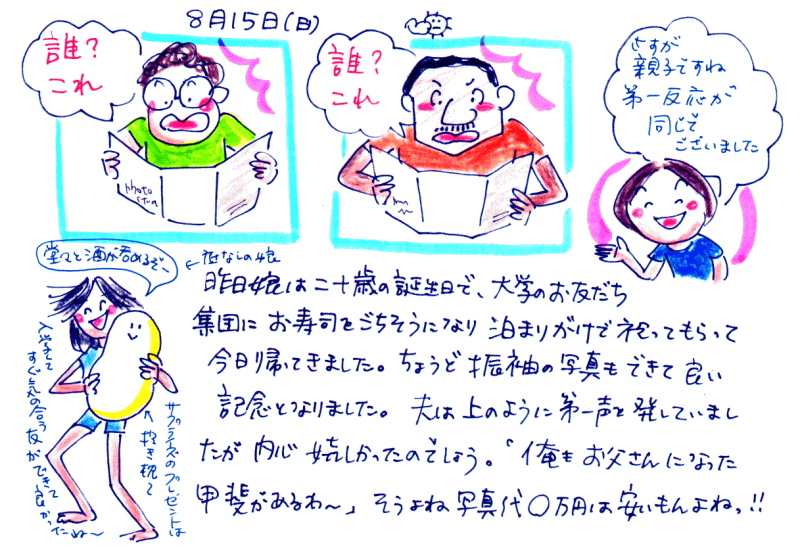 8月15日(日)
誰?
これ
photo
誰?
これ
さすが
親子ですね
第一反応が
同じで
ございました
堂々と酒が呑めるぞ〜
昨日娘は二十歳の誕生日で、大学のお友だち
集団にお寿司をごちそうになり泊まりがけで祝ってもらって
今日帰ってきました。ちょうど振袖の写真もできて良い
記念となりました。夫は上のように第一声を発していまし
たが内心嬉しかったのでしょう。「俺もお父さんになった
甲斐があるわ〜」そうよね写真代〇万円は安いもんよねっ!!
サプライズのプレゼントは
抱き枕で
入学して
すぐ気の合う
友ができて
良かったね〜